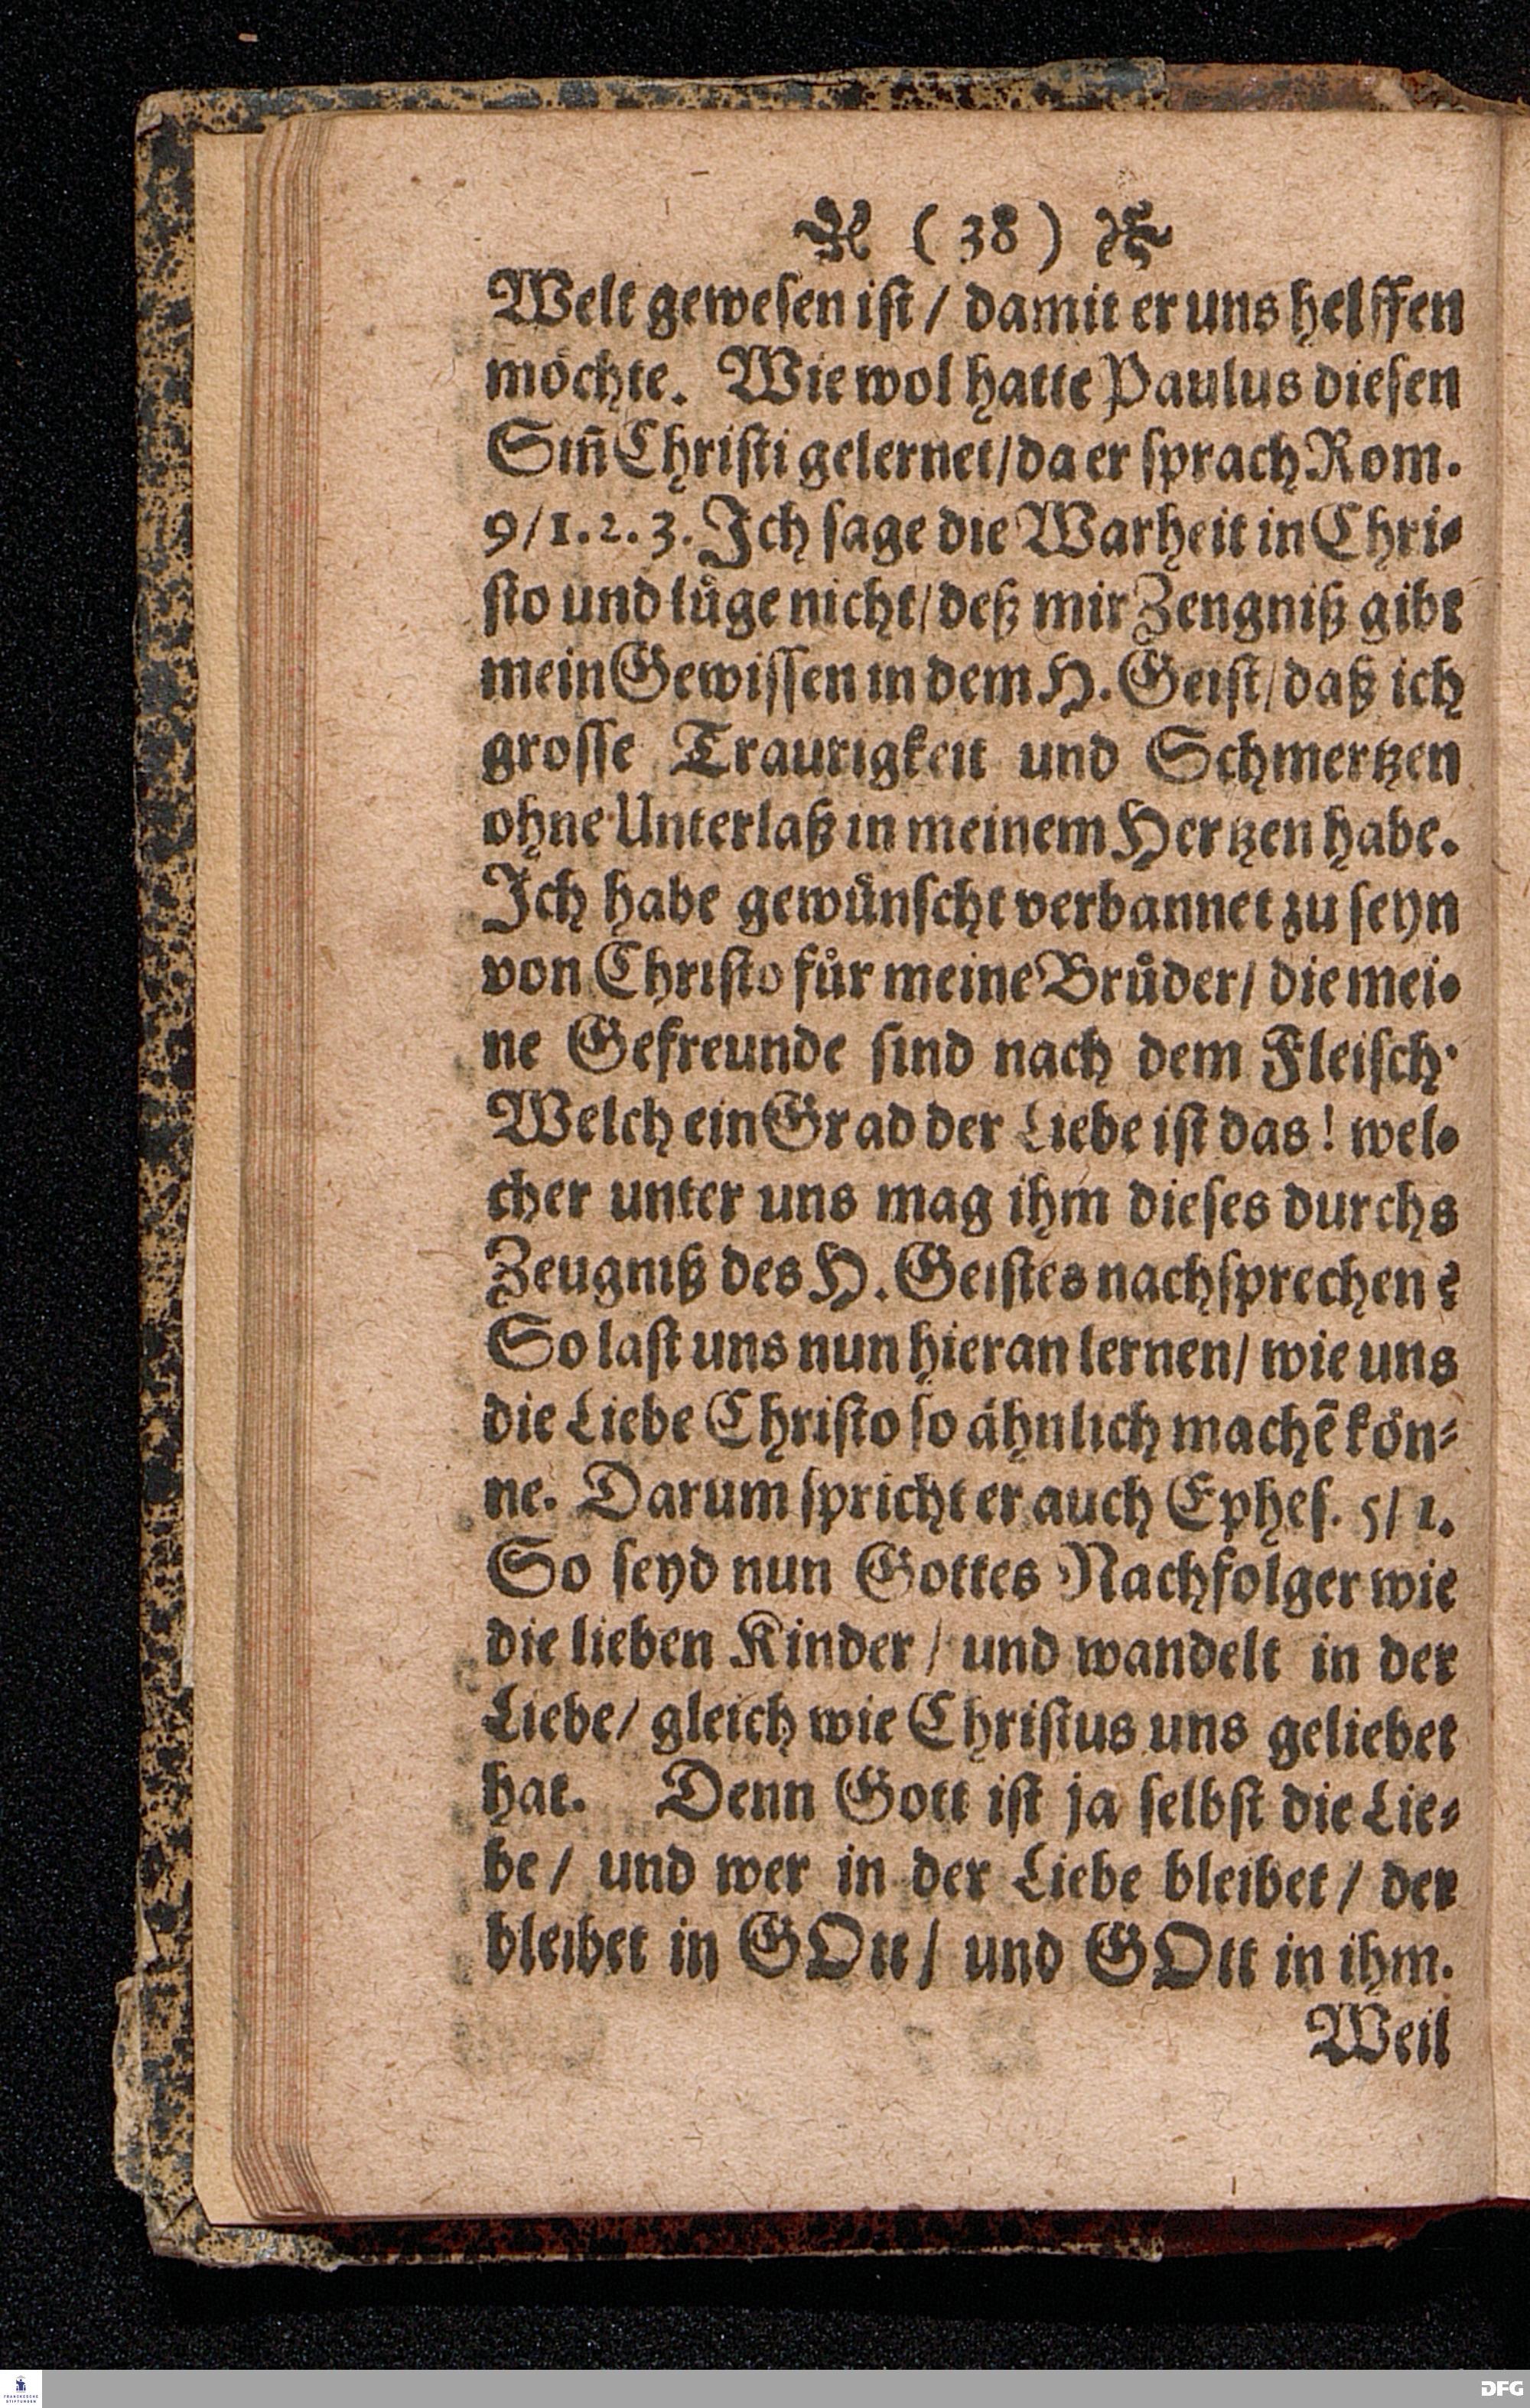 ( 38 )
Welt gewesen ist / damit er uns helffen
möchte. Wie wol hatte Paulus diesen
Siñ Christi gelernet / da er sprach Rom.
9/1.2.3. Ich sage die Warheit in Chri-
sto und lüge nicht / deß mir Zengniß gibt
mein Gewissen in dem H. Geist / daß ich
grosse Traurigkeit und Schmertzen
ohne Unterlaß in meinem Hertzen habe.
Ich habe gewünscht verbannet zu seyn
von Christo für meine Brüder / die mei-
ne Gefreunde sind nach dem Fleisch.
Welch ein Grad der Liebe ist das! wel-
cher unter uns mag ihm dieses durchs
Zeugniß des H. Geistes nachsprechen?
So last uns nun hieran lernen / wie uns
die Liebe Christo so ähnlich machẽ kön-
ne. Darum spricht er auch Ephes. 5/ 1.
So seyd nun Gottes Nachfolger wie
die lieben Kinder / und wandelt in der
Liebe / gleich wie Christus uns geliebet
hat. Denn Gott ist ja selbst die Lie-
be / und wer in der Liebe bleibet / der
bleibet in GOtt / und GOtt in ihm.
Weil
FRANCKESCHE STIFTUNGEN
DFG